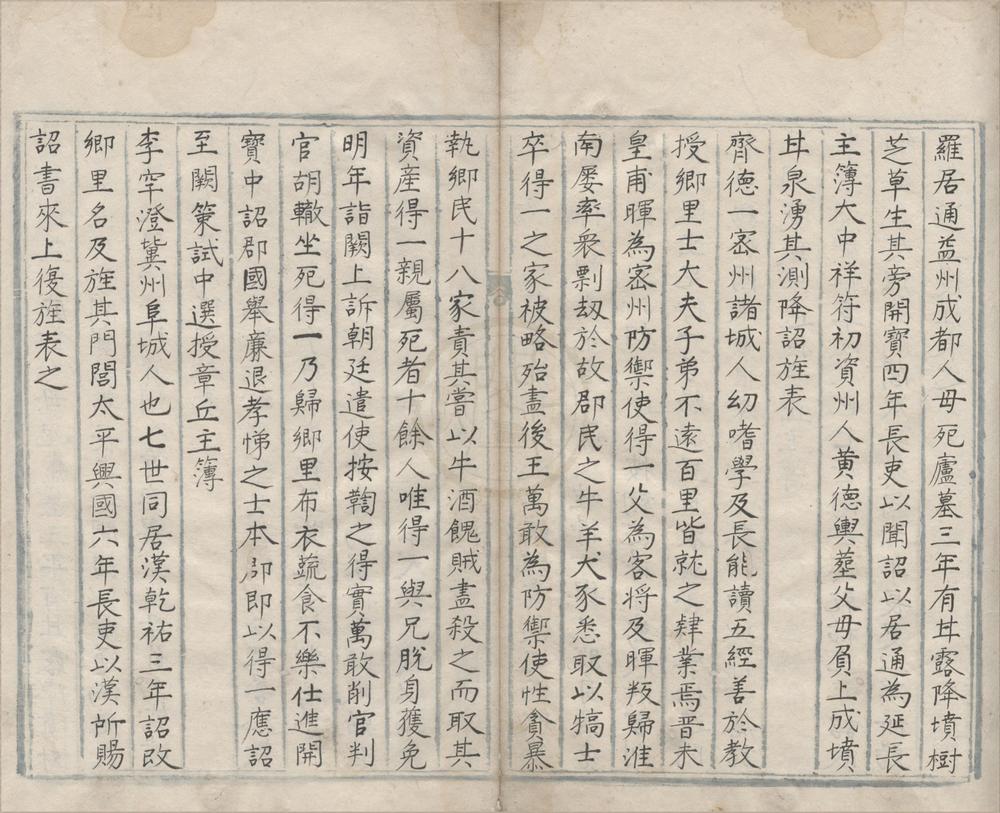 羅居通益州成都人母死廬墓三年有甘露降墳樹
芝草生其旁開寶四年長吏以聞詔以居通為延長
主簿大中祥符初資州人黄德輿塟父母負土成墳
甘泉湧其測降詔旌表
齊德一密州諸城人幼嗜學及長能讀五經善於教
授鄉里士大夫子弟不遠百里皆就之肄業焉晋末
皇甫暉為密州防禦使得一父為客将及暉叛歸淮
南屡率衆剽刼於故郡民之牛羊犬豕悉取以犒士
卒得一之家被略殆盡後王萬敢為防禦使性貪暴
執鄉民十八家責其嘗以牛酒餽賊盡殺之而取其
資産得一親屬死者十餘人唯得一與兄脫身獲免
明年詣闕上訴朝廷遣使按鞫之得實萬敢削官判
官胡轍坐死得一乃歸鄉里布衣蔬食不樂仕進開
寶中詔郡國舉亷退孝悌之士本郡即以得一應詔
至闕策試中選授章丘主簿
李罕澄冀州阜城人也七世同居漢乾祐三年詔改
鄉里名及旌其門閭太平興國六年長吏以漢所賜
詔書來上復旌表之